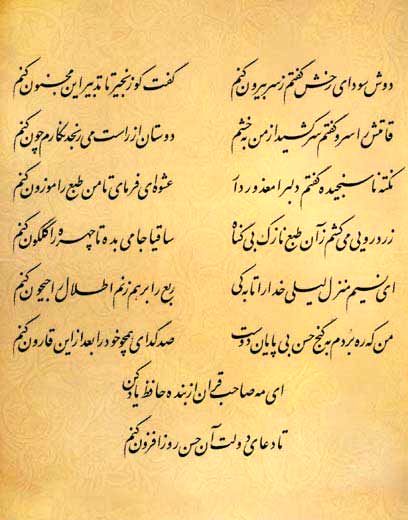 دوش سودای رخش گفتم ز سر بیرون کنم گفت کو زنجیر تا تدبیر این مجنون کنم
قامتش را سرو گفتم سر کشید از من به خشم دوستان از راست می رنجد نگارم چون کنم
نکته ناسنجیده گفتم دلبرا معذور دار عشوه ای فرمای تا من طبع را موزون کنم
زرد رویی می کشم زآن طبع نازک بی گناه ساقیا جامی بده تا چهره را گلگون کنم
ای نسیم منزل لیلی خدا را تا به کی ربع را بر هم زنم اطلال را جیحون کنم
من که ره بردم به گنج حسن بی پایان دوست صد گدای همچو خود را بعد از این قارون کنم
ای مه صاحب قران از بنده حافظ یاد کن
تا دعای دولت آن حسن روز افزون کنم